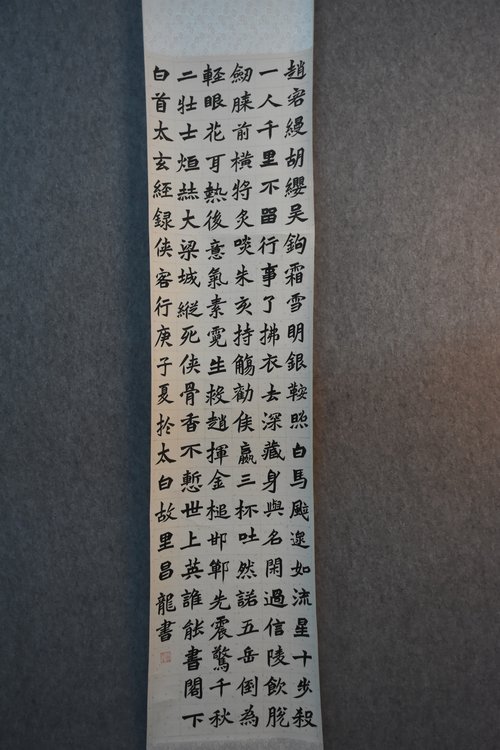 趙客縵胡纓吳鉤霜雪明銀鞍照白馬颯遝如流星十步殺
一人千里不留行事了拂衣去深藏身與名閑過信陵飲脫
劒膝前橫將炙啖朱亥持觴勸侯嬴三杯吐然諾五岳倒為
輕眼花耳熱後意氣素霓生救趙揮金槌邯鄲先震驚千秋
二壯士烜赫大梁城縱死俠骨香不慙世上英誰能書閣下
白首太玄經録俠客行庚子夏於太白故里昌龍書